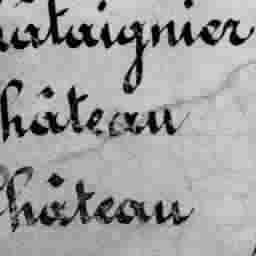 hâtaignier
hâteau
Château